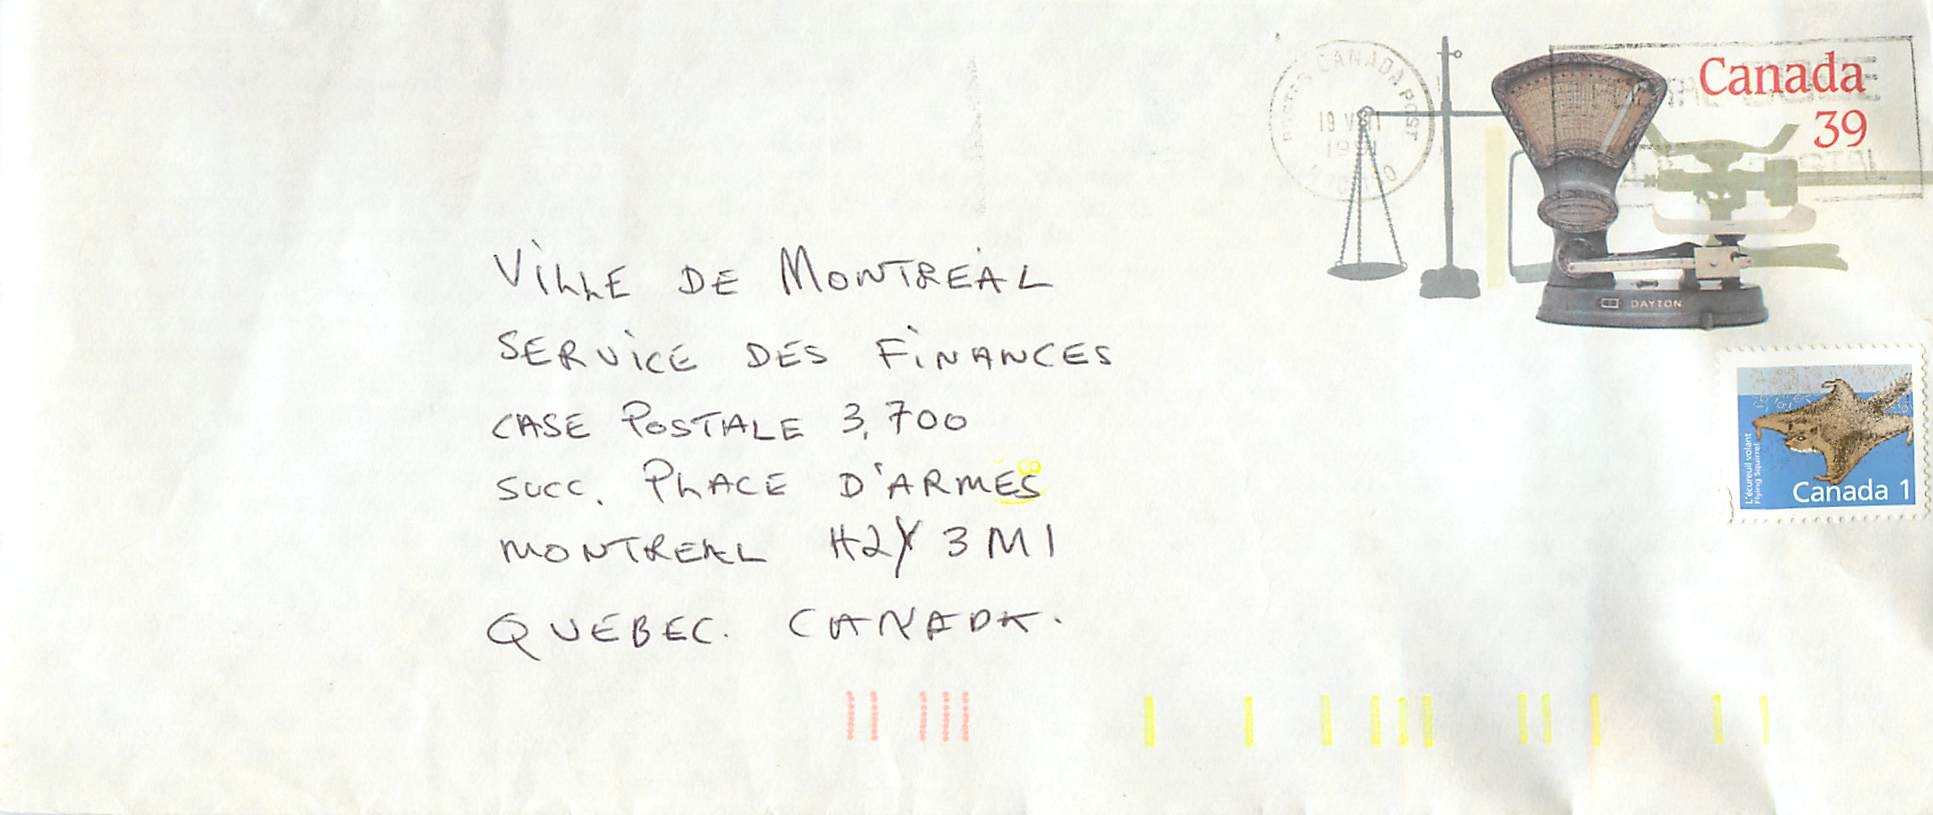 POSTES CANADA POST
19 VI
1991
Canada
39
DAYTON
VILLE DE MONTREAL
SERVICE DES FINANCES
CASE POSTALE 3,700
SUCC. PLACE D'ARMES
MONTREAL H2Y 3M1
QUEBEC. CANADA.
L'écureuil volant
Flying Squirrel
Canada 1